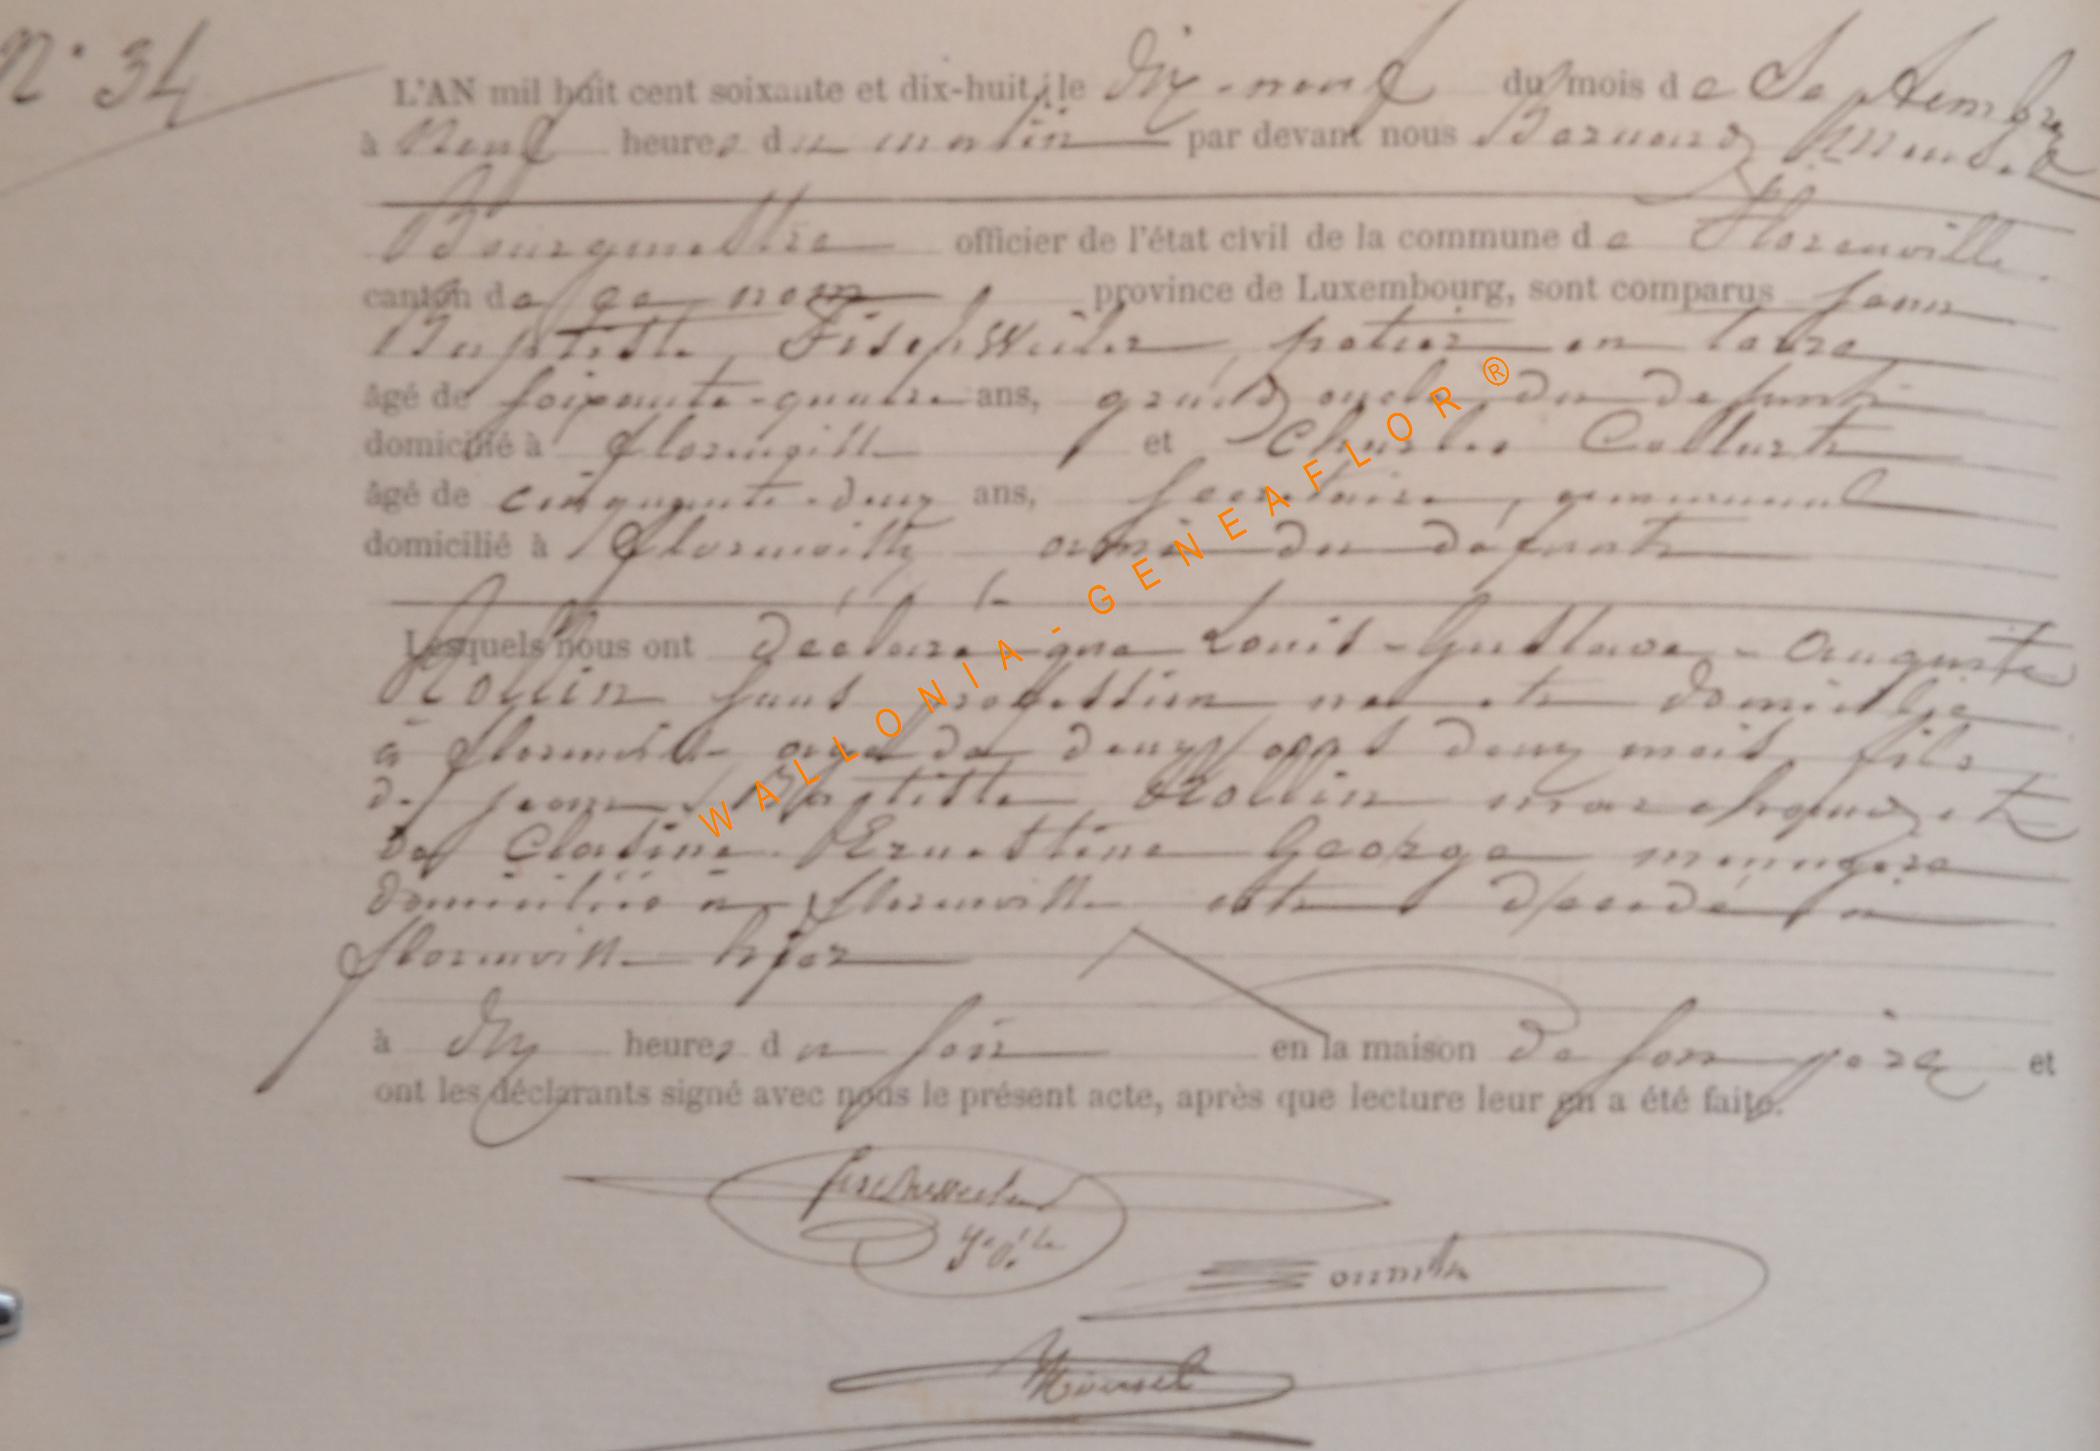 N° 34
L'AN mil huit cent soixante et dix-huit, le dix-neuf du mois de Septembre
à neuf heures du matin par devant nous Bernard
Bourgmestre officier de l'état civil de la commune de Florenville
canton de ce nom province de Luxembourg, sont comparus Jean
Baptiste potier en terre
âgé de soixante-quatre ans, grand oncle du defunt
domicilié à florenville et Charles Collart
âgé de cinquante-deux ans, secretaire communal
domicilié à florenville ami du défunt
Lesquels nous ont déclaré que Louis-Gustave-Auguste
Rollin sans profession né et domicilié
à florenville agé de deux mois, fils
de Jean Baptiste Rollin marechque et
de Ernestine George menagère
domiciliés à florenville est décédé à
florenville hier
à dix heures du soir en la maison de son père et
ont les déclarants signé avec nous le présent acte, après que lecture leur en a été faite.
WALLONIA-GENEAFLOR®